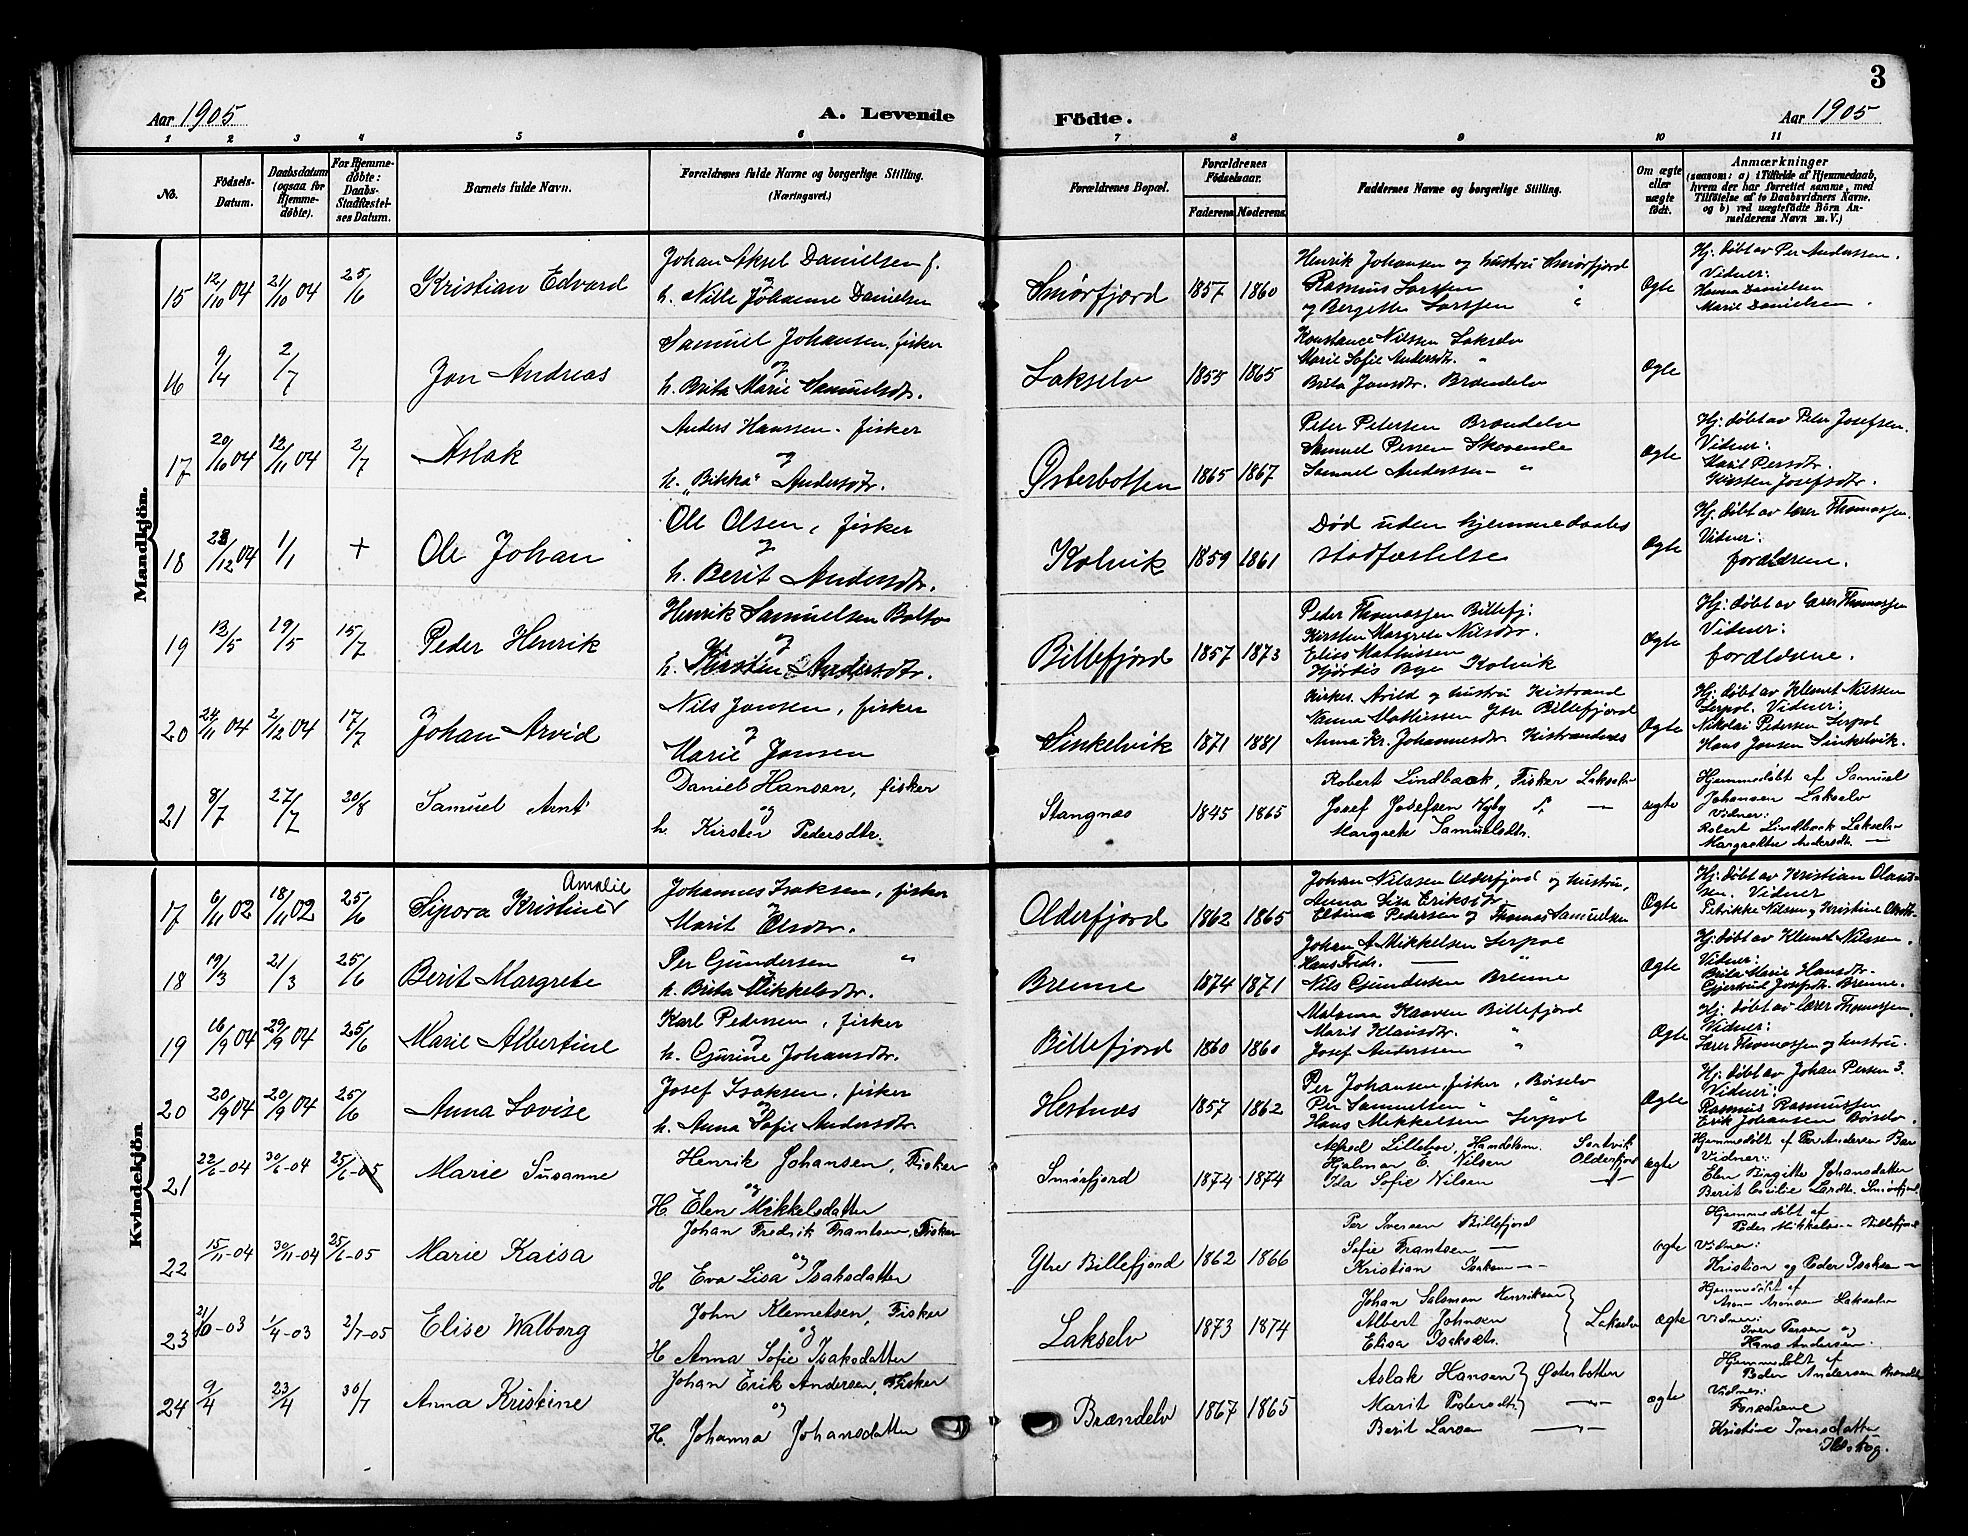 3
Aar 1905
A. Levende
Födte.
Aar 1905
1 2 3 4 5 6 7 8 9 10 11
No.
Födsels-Datum.
Daabsdatum (ogsaa for Hjemme-döbte).
For Hjemme-döbte: Daabs-Stadfæstel-ses Datum.
Barnets fulde Navn.
Forældrenes fulde Navne og borgerlige Stilling.
(Næringsvei.)
Forældrenes Bopæl.
Forældrenes Födselsaar.
Faderens. Moderens.
Faddernes Navne og borgerlige Stilling.
Om ægte eller uægte født.
Anmærkninger
(saasom: a) i Tilfælde af Hjemmedaab, hvem der har forrettet samme, med Tilföielse af to Daabsvidners Navne. og b) ved uægtefödte Börn An-melderens Navn m. V.)
Mandkjön.
15 12/10 04 21/10 04 25/6 Kristian Edvard
Johan Aksel Danielsen f.
og
h. Nille Johanne Danielsen
Smørfjord 1857 1860
Henrik Johansen og hustru Smørfjord
Rasmus Larssen "
og Bergette Larssen "
Ægte
Hj. døbt av Per Anderssen.
Vidner:
Hanna Danielsen
Marie Danielsen.
16 9/4 2/7 Jon Andreas
Samuel Johansen, fisker
og
h. Brita Marie Samuelsdtr.
Lakselv 1855 1865
Konstance Nilssen Lakselv
Marie Sofie Andersdtr. "
Brita Jonsdtr. Brændelv
Ægte
17 20/10 04 12/11 04 2/7 Aslak
Anders Hanssen. fisker
og
h. "Bikka" Andersdtr.
Østerbotten 1865 1867
Peter Petersen Brændelv
Samuel Persen Skovende
Samuel Anderssen "
Ægte
Hj. døbt av Peter Josefsen.
Vidner:
Marit Persdtr.
Kirsten Josefsdtr.
18 28/12 04 1/1 + Ole Johan
Ole Olsen, fisker
og
h. Berit Andersdtr.
Kolvik 1859 1861
Død uden hjemmedaabs
stadfæstelse
Ægte
Hj. døbt av lærer Thomassen.
Vidner:
forældrene.
19 13/5 19/5 15/7 Peder Henrik
Henrik Samuelsen Balto
og
h. Kirsten Andersdtr.
Billefjord 1857 1873
Peder Thomassen Billefj.
Kirsten Margrete Nilsdtr.
Elias Mathissen
Hjørdis Bye Kolvik
Ægte
Hj. døbt av lærer Thomassen
Vidner:
forældrene.
20 24/11 04 2/12 04 17/7 Johan Arvid
Nils Jonsen, fisker
og
Marie Jonsen
Sinkelvik 1871 1881
Kirkes. Arild og hustru Kistrand
Nanna Mathissen Ytre Billefjord
Anna Kr. Johannesdtr. Kistrandnes
Ægte
Hj. døbt av Klemet Nilssen
Serpol. Vidner:
Nikolai Pedersen Serpol
Hans Jonsen Sinkelvik.
21 8/7 27/7 20/8 Samuel Arnt
Daniel Hansen, fisker
og
h. Kirsten Pedersdtr.
Stangnæs 1845 1865
Robert Lindback, Fisker Lakselv
Josef Josefsen
Margrete Samuelsdtr.
ægte
Hjemmedøbt af Samuel
Johansen Lakselv
Vidner:
Robert Lindback Lakselv
Margrethe Andersdtr. —
Kvindekjön
17 6/11 02 18/11 02 25/6 Sipora Kristine Amalie
Johannes Isaksen, fisker
og
Marit Olsdtr.
Olderfjord 1862 1865
Johan Nilssen Olderfjord og hustru,
Anna Lisa Eriksdtr.
Eldina Pedersen og Thomas Samuelsen
Ægte
Hj. døbt av Kristian Olaus-
sen. Vidner
Petrikke Nilsen og Kristine
18 19/3 21/3 25/6 Berit Margrete
Per Gundersen "
h. Brita Mikkelsdtr.
Brenne 1874 1871
Johan A Mikkelsen Serpol
Hans Fredr. — "
Nils Gundersen Brenne
Ægte
Hj. døbt av Klemet Nilssen.
Vidner:
Brita Marie Hansdtr.
Gjertrud Josefsdtr. Brenne.
19 16/9 04 29/9 04 25/6 Marie Albertine
Karl Pedersen, fisker
og
h. Gurine Johansdtr.
Billefjord 1860 1860
Malena Kaaven Billefjord
Marit Klausdtr. "
Josef Anderssen "
Ægte
Hj. døbt av lærer Thomassen.
Vidner:
Lærer Thomassen og hustru.
20 20/9 04 20/9 04 25/6 Anna Lovise
Josef Isaksen, fisker
og
h. Anna Sofie Andersdtr.
Hestnæs 1857 1862
Per Johansen, fisker, Børselv
Per Samuelsen " "
Hans Mikkelsen Serpol
Ægte
Hj. døbt av Johan Persen 3.
Vidner:
Rasmus Rasmussen
Erik Johansen Børselv.
21 22/6-04 30/6-04 25/6-05 Marie Susanne
Henrik Johansen, Fisker
og
H. Elen Mikkelsdatter
Smørfjord 1874 1874
Alfred Lillebo, Handelsm. Sortvik
Hjalmar E. Nilsen Olderfjord
Ida Sofie Nilsen —
ægte
Hjemmedøbt af Per Andersen Bar
Vidner:
Elen Birgitte Johansdatter
Berit Cecilie Larsdtr. Smørfjord
22 15/11-04 30/11-04 25/6-05 Marie Kaisa
Johan Fredrik Frantsen, Fisker
og
H Eva Lisa Isaksdatter
Ytre Billefjord 1862 1866
Per Iversen Billefjord
Sofie Frantsen —
Kristian Isaksen —
ægte
Hjemmedøbt af
Peder Mikkelsen Billefjord
Vidner:
Kristian og Peder Isaksen —
23 21/10-03 1/4-03 2/7-05 Elise Walborg
John Klemetsen, Fisker
og
H Anna Sofie Isaksdatter
Lakselv 1873 1874
Johan Salomon Henriksen
Albert Johnsen
Elisa Isaksdtr.
Lakselv
ægte
Hjemmedøbt af
Aron Aronsen Lakselv
Vidner:
Iver Persen og
Hans Andersen
24 9/4 23/4 30/7 Anna Kristine
Johan Erik Andersen, Fisker
og
H. Johanna Johansdatter
Brændelv 1867 1865
Aslak Hansen Østerbotten
Marit Pedersdtr. —
Berit Larsen —
ægte
Hjemmedøbt af
Peder Andersen Brændelv
Vidner:
Forældrene
Kristine Iversdatter